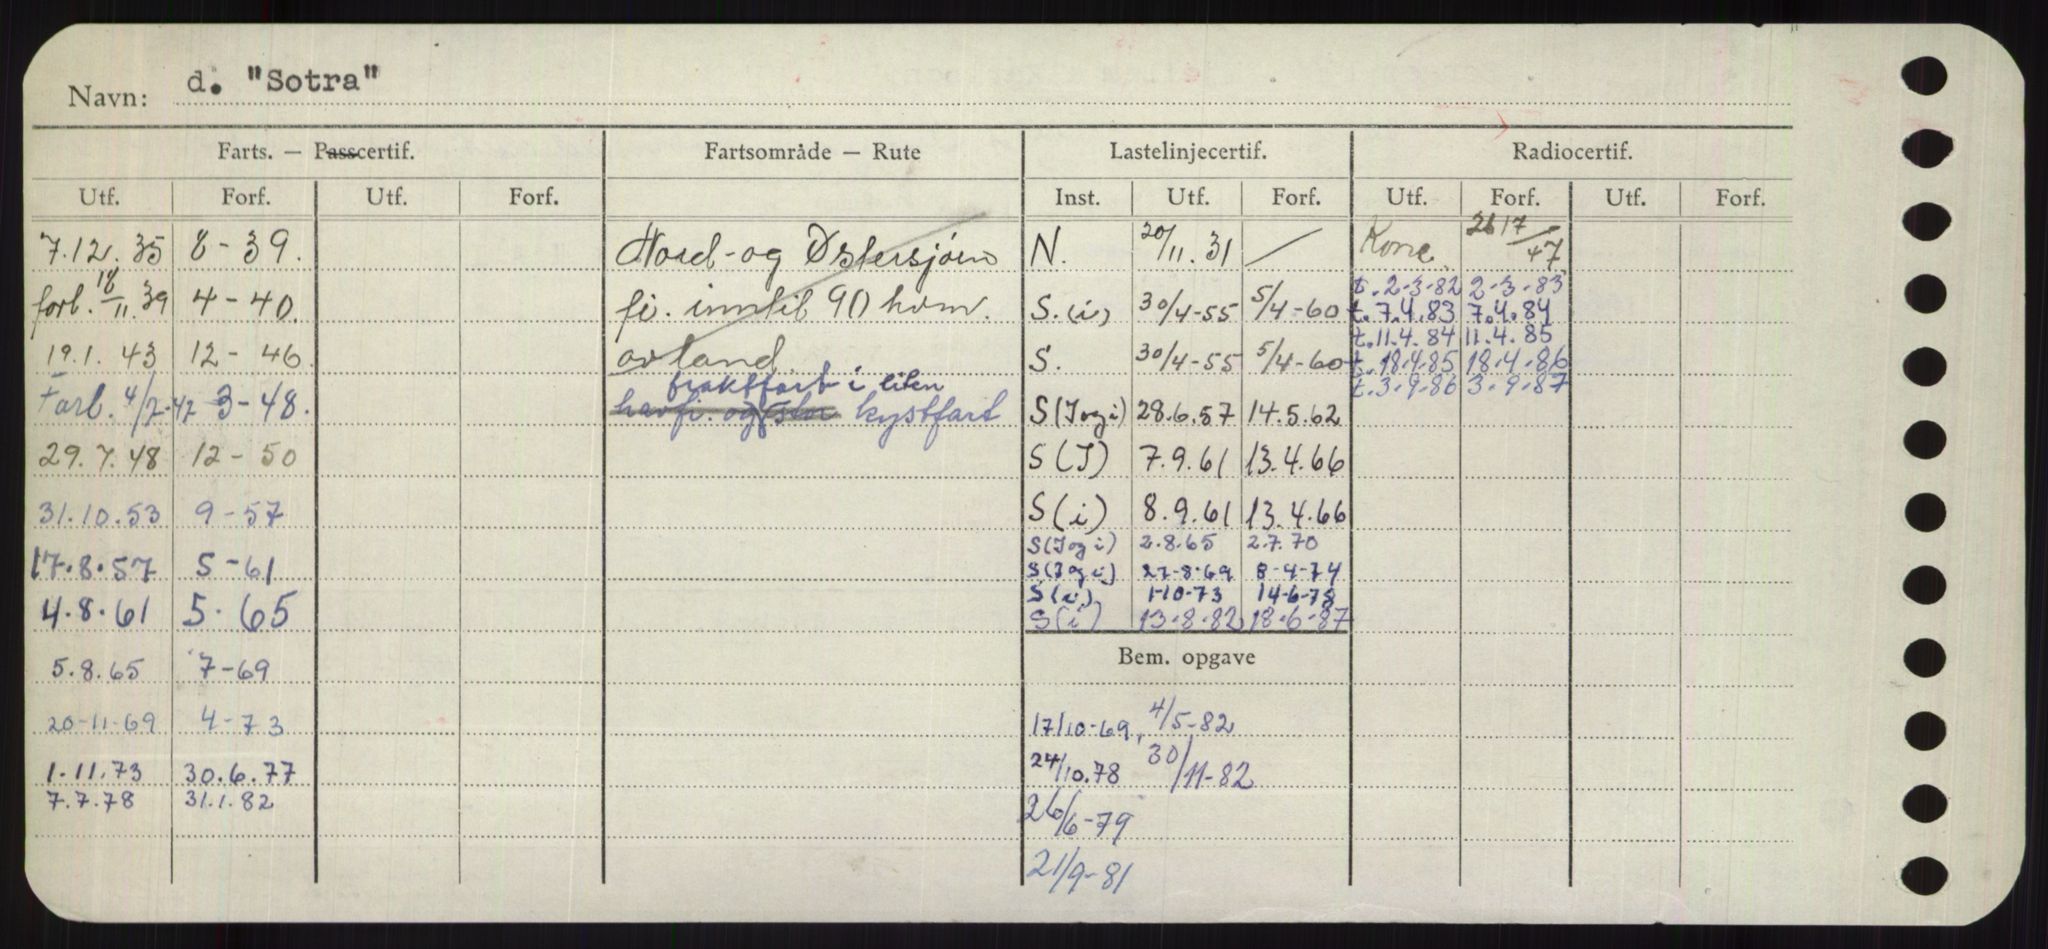 Navn: d. "Sotra"
Farts. — Passcertif. Fartsområde — Rute Lastelinjecertif. Radiocertif.
Utf. Forf. Utf. Forf. Inst. Utf. Forf. Utf. Forf. Utf. Forf.
7.12.35 8-39. Nord-og Østersjøen N. 20/11.31 / Konc. 2617/47
t.2-3-82 2-3-83
forl. 18/11.39 4-40. fi. inntil 90 kvm. S.(i) 30/4-55 5/4-60 t.7.4.83 7.4.84
t.11.4.84 11.4.85
19.1.43 12-46 av land. S. 30/4-55 5/4-60 t.18.4.85 18.4.86
fraktfart i liten t.3.9.86 3.9.87
Forl. 4/7-47 3-48. havfi. og stor kystfart S(I og i) 28.6.57 14.5.62
29.7.48 12-50 S(I) 7.9.61 13.4.66
31.10.53 9-57 S(i) 8.9.61 13.4.66
S(I og i) 2.8.65 2.7.70
17.8.57 5-61 S(I og i) 27-8-69 8-4-74
4.8.61 5.65 S(i) 1-10-73 14-6-78
S(i) 13.8.82 18.6.87
5.8.65 7-69 Bem. opgave
20-11-69 4-73 17/10-69, 4/5-82
1.11.73 30.6.77 24/10.78 30/11-82
7.7.78 31.1.82 26/6-79
21/9-81